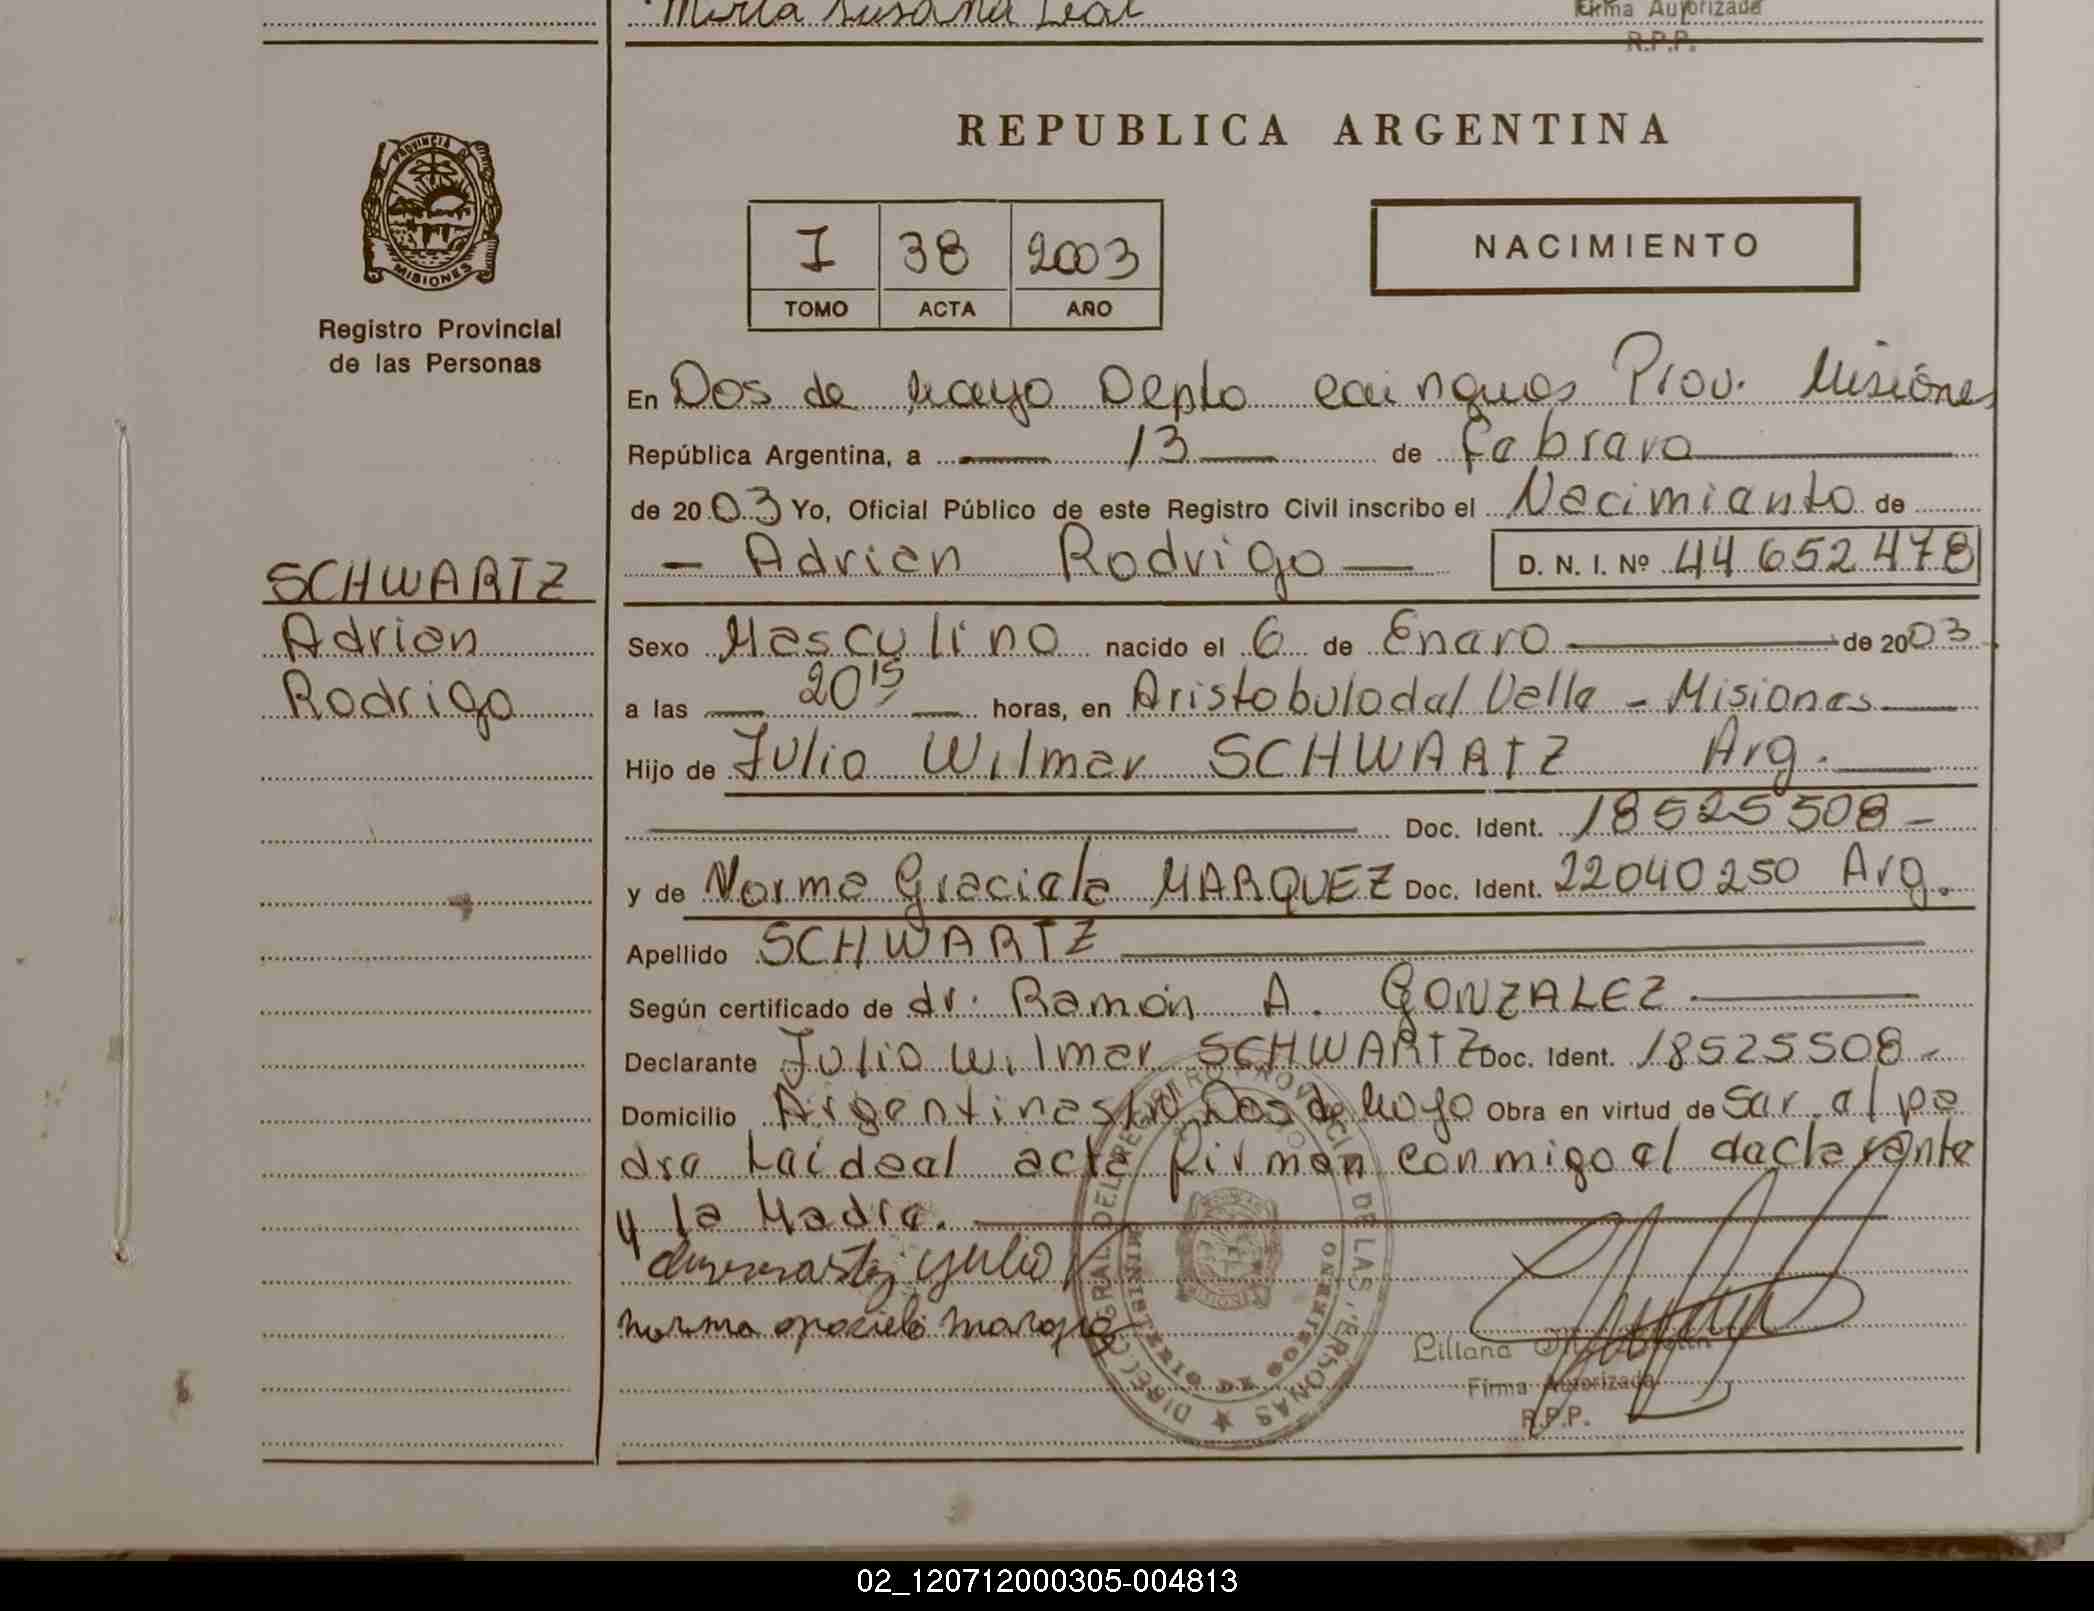 Mirta Susana Leal
Firma Autorizada
R.P.P.
PROVINCIA DE
MISIONES
Registro Provincial
de las Personas
REPUBLICA ARGENTINA
I 38 2003
TOMO ACTA AÑO
NACIMIENTO
En Dos de Mayo Depto Cainguas Prov. Misiones
República Argentina, a 13 de Febrero
de 2003 Yo, Oficial Público de este Registro Civil inscribo el Nacimiento de
- Adrian Rodrigo — D. N. I. Nº 44 652 478
SCHWARTZ
Adrian
Rodrigo
Sexo Masculino nacido el 6 de Enero de 2003
a las 20 15 horas, en Aristobulo del Valle - Misiones
Hijo de Julio Wilmar SCHWARTZ Arg.
Doc. Ident. 18525508 -
y de Norma Graciela MARQUEZ Doc. Ident. 22040250 Arg.
Apellido SCHWARTZ
Según certificado de dr. Ramón A. GONZALEZ
Declarante Julio Wilmar SCHWARTZ Doc. Ident. 18525508 -
Domicilio Argentina s/n Dos de Mayo Obra en virtud de Ser el pa
dre Leida el acta firman conmigo el declarante
y la Madre.
Julio
norma graciela
Liliana
Firma Autorizada
R.P.P.
DIRECC. GRAL. DEL REGISTRO PROVINCIAL DE LAS PERSONAS
MINISTERIO DE GOBIERNO
02_120712000305-004813